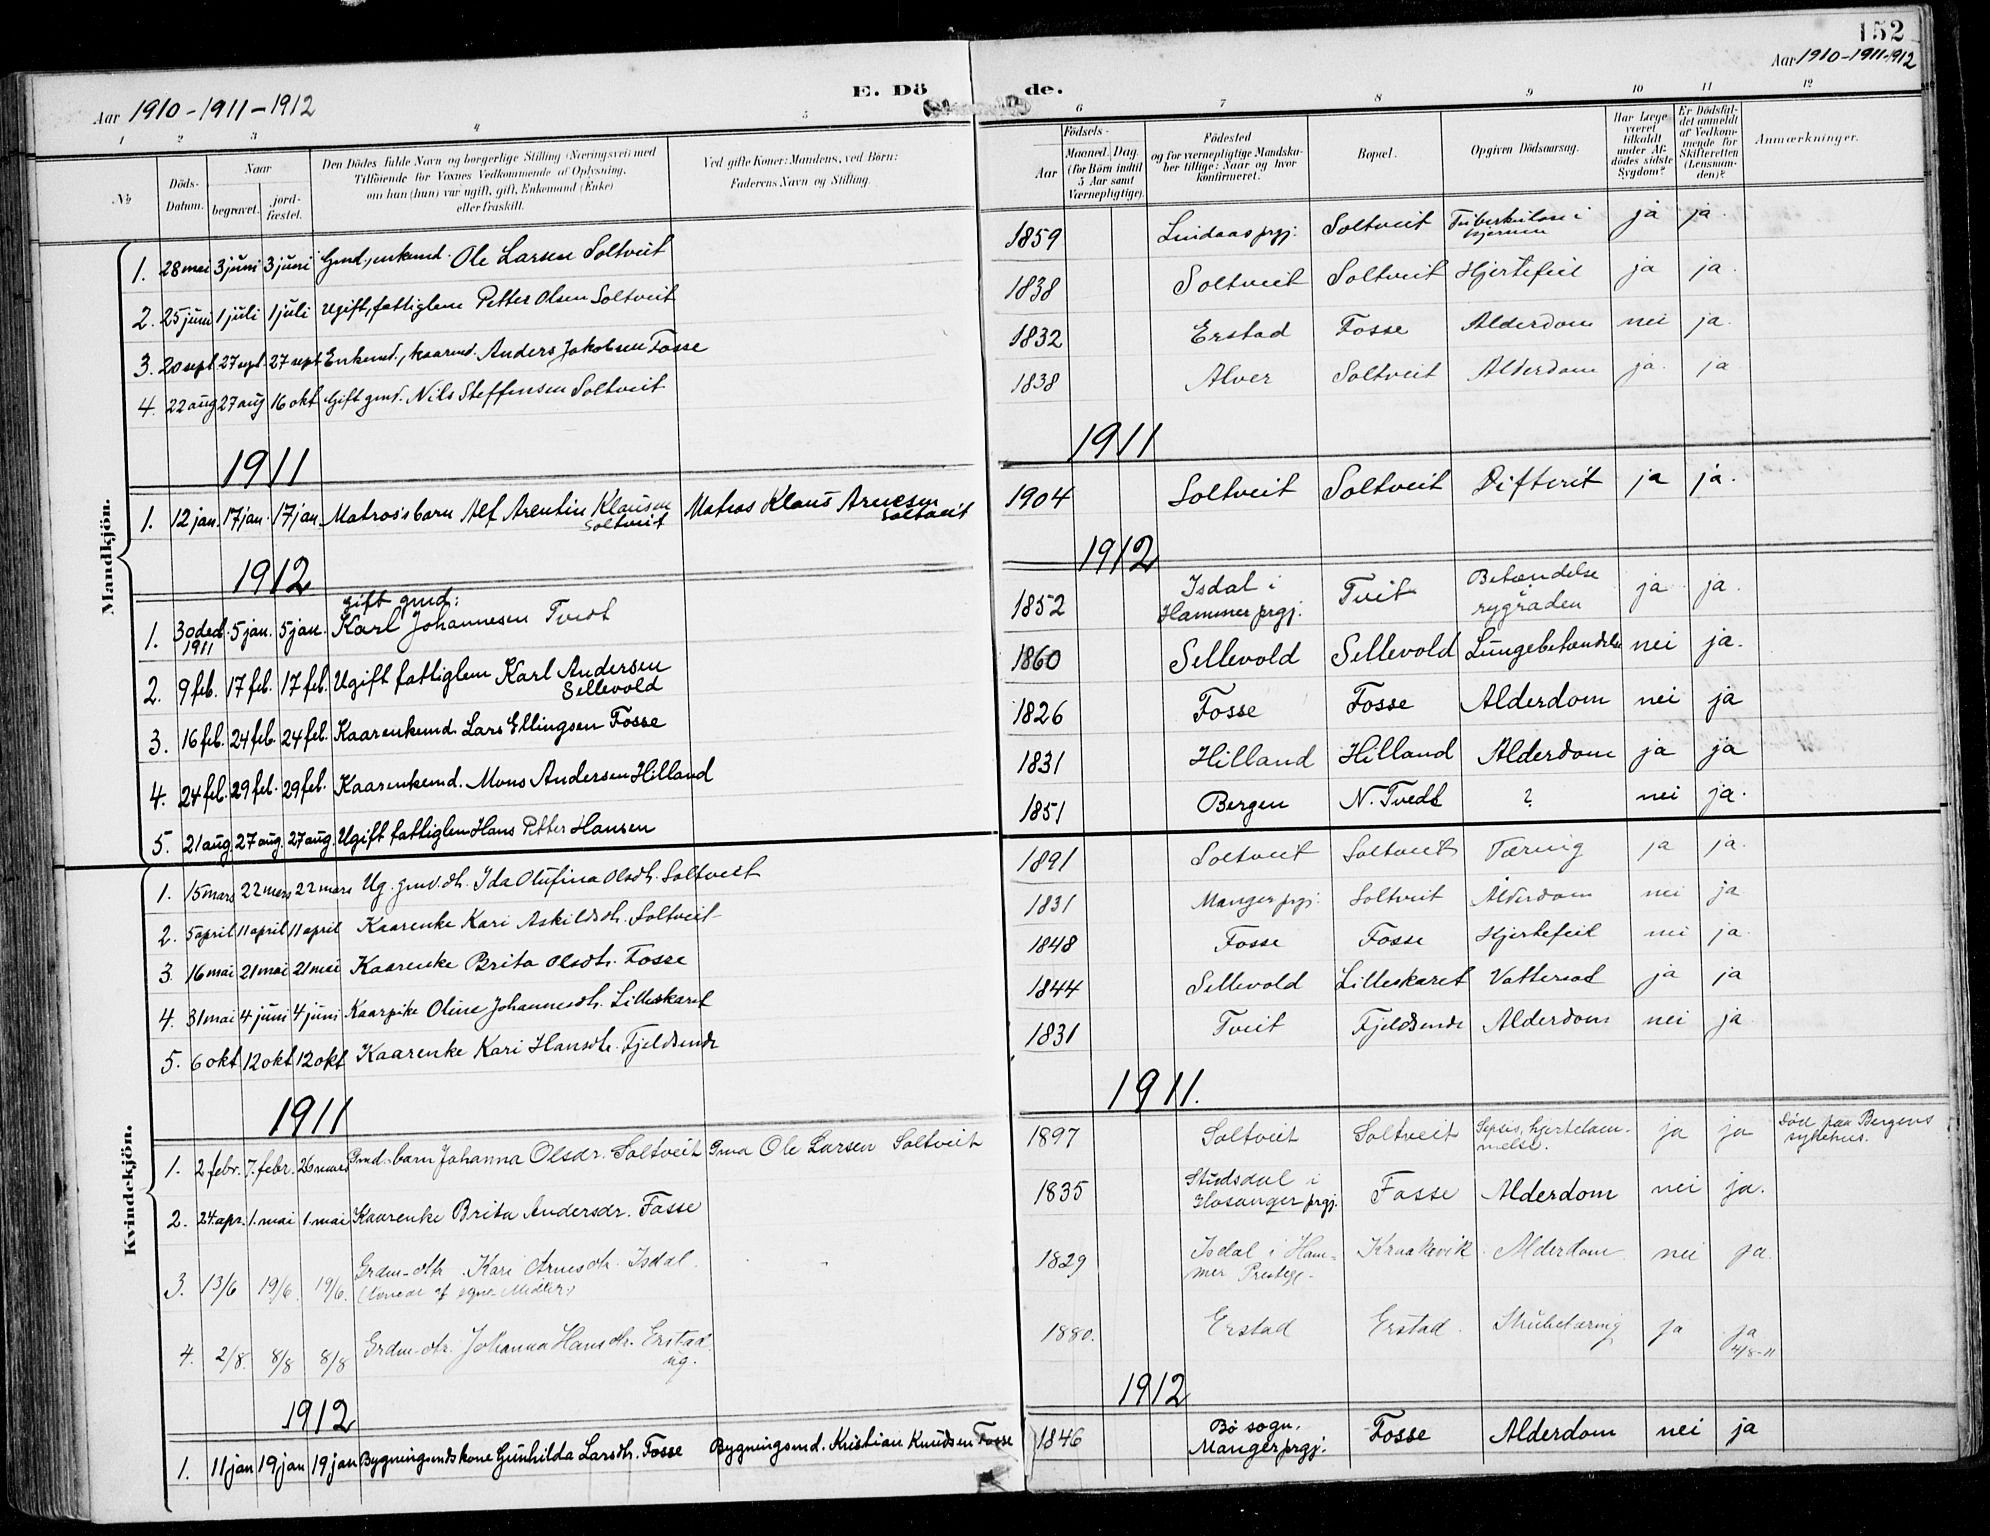 152
Aar 1910-1911-1912
E. Dö
de.
Aar 1910-1911-1912
1 2 3 4 5 6 7 8 9 10 11 12
No
Döds-Datum.
Naar
begravet.
jord-fæstet.
Den Dödes fulde Navn og borgerlige Stilling (Næringsvei) med
Tilföiende for Voxnes Vedkommende af Oplysning,
om han (hun) var ugift, gift, Enkemand (Enke)
eller fraskilt.
Ved gifte Koner: Mandens, ved Börn:
Faderens Navn og Stilling.
Födsels-
Aar
Maaned. Dag.
(for Börn indtil
5 Aar samt
Værnepligtige).
Födested
og for værnepligtige Mandska-
ber tillige: Naar og hvor
konfirmeret.
Bopæl.
Opgiven Dödsaarsag.
Har Læge
været
tilkaldt
under Af-
dödes sidste
Sygdom?
Er Dödsfal-
det anmeldt
af Vedkom-
mende for
Skifteretten
(Lensman-
den)?
Anmærkninger.
Mandkjön.
1. 28 mai 3 juni 3 juni Gmd., enkemd. Ole Larsen Soltveit 1859 Lindaas prgj. Soltveit Tuberkulose i hjernen ja ja.
2. 25 juni 1 juli 1 juli Ugift, fattiglem Petter Olsen Soltveit 1838 Soltveit Soltveit Hjertefeil ja ja.
3. 20 sept 27 sept. 27 sept Enkemd., kaarmd. Anders Jakobsen Fosse 1832 Erstad Fosse Alderdom nei ja.
4. 22 aug 27 aug 16 okt Gift gmd. Nils Steffensen Soltveit 1838 Alver Soltveit Alderdom ja. ja
1911 1911
1. 12 jan. 17 jan. 17 jan. Matros's barn Alf Arentin Klausen Soltveit Matros Klaus Arnesen Soltveit 1904 Soltveit Soltveit Difterit ja ja.
1912 1912
1. 30 ded. 1911 5 jan. 5 jan. gift gmd: Karl Johannesen Tvedt 1852 Isdal i Hammer prgj. Tveit Betændelse i rygraden ja ja.
2. 9 feb. 17 feb. 17 feb. Ugift fattiglem Karl Andersen Sellevold 1860 Sellevold Sellevold Lungebetændelse nei ja.
3. 16 feb. 24 feb. 24 feb. Kaarenkemd. Lars Ellingsen Fosse 1826 Fosse Fosse Alderdom nei ja
4. 24 feb. 29 feb. 29 feb. Kaarenkemd. Mons Andersen Hilland 1831 Hilland Hilland Alderdom ja ja
5. 21 aug. 27 aug. 27 aug. Ugift fattiglem Hans Petter Hansen 1851 Bergen N. Tvedt ? nei ja.
Kvindekjön.
1. 15 mars 22 mars 22 mars Ug. gmd. dt. Ida Olufina Olsdt. Soltveit 1891 Soltveit Soltveit Tæring ja ja.
2. 5 april 11 april 11 april Kaarenke Kari Askildsdt. Soltveit 1831 Manger prgj. Soltveit Alderdom nei ja
3. 16 mai 21 mai 21 mai Kaarenke Brita Olsdt. Fosse 1848 Fosse Fosse Hjertefeil nei ja.
4. 31 mai 4 juni 4 juni Kaarpike Oline Johannesdt. Lilleskaret 1844 Sellevold Lilleskaret Vattersod ja ja
5. 6 okt 12 okt 12 okt Kaarenke Kari Hansdt. Fjeldsende 1831 Tveit Fjeldsende Alderdom nei ja
1911 1911.
1. 2 febr. 7. febr. 26 mars Gmd.-barn Johanna Olsdr. Soltveit Gmd Ole Larsen Soltveit 1897 Soltveit Soltveit Sepsis, hjertelam-melse. ja ja Död paa Bergens sykehus.
2. 24. apr. 1. mai 1. mai Kaarenke Brita Andersdr. Fosse 1835 Studsdal i Hosanger prgj. Fosse Alderdom nei ja.
3. 13/6 19/6. 19/6. Grdm-dtr. Kari Arnesdt. Isdal. (levede af egne Midler) 1829 Isdal i Ham-mer Prestegj. Kraakevik Alderdom. nei ja.
4. 2/8. 8/8 8/8 Grdm-dtr. Johanna Hansdt. Erstad ug. 1880. Erstad Erstad. Strubetæring ja ja 4/8-11
1912 1912
1. 11 jan 19 jan 19 jan Bygningsmdskone Gunhilda Larsdt. Fosse Bygningsmd. Kristian Knudsen Fosse 1846 Bø sogn, Manger prgj. Fosse Alderdom nei ja